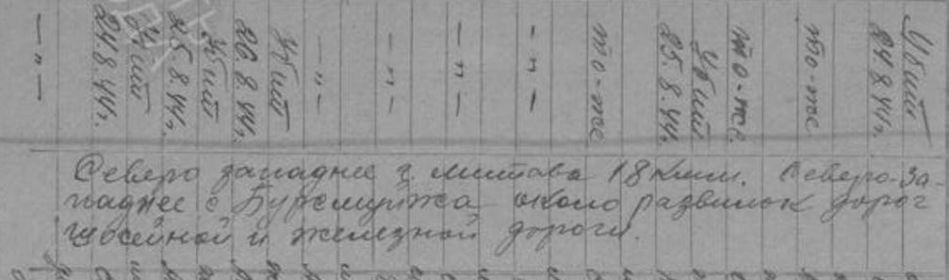 Убит
24.8.44г.
то-же
то-же
Убит
25.8.44
то-же
— " —
— " —
— " —
— " —
Убит
26.8.44г.
Убит
25.8.44г.
Убит
24.8.44г.
— " —
Северо западнее г. Митава 18 клм. Северо-за-
паднее с. около развилок дорог
шоссейной и железной дороги.